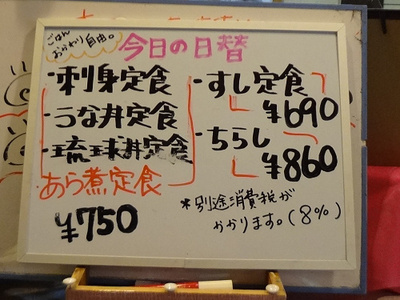 ごはん
おかわり自由。
今日の日替
・刺身定食
・うな丼定食
・琉球丼定食
あら煮定食
¥750
・すし定食
¥690
・ちらし
¥860
*別途消費税が
かかります。(8%)